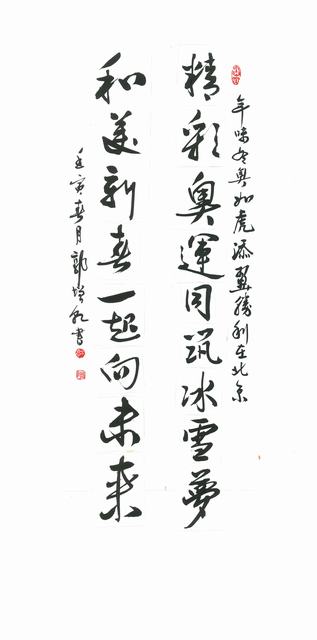 年味冬奥如虎添翼胜利在北京
精彩奥運同筑冰雪夢
和美新春一起向未来
壬寅春月郭增书